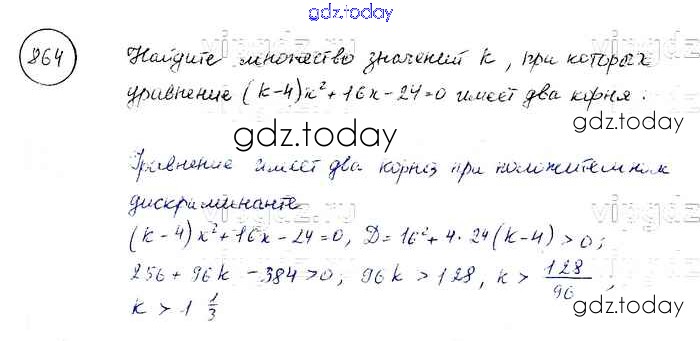 gdz.today
864
Найдите множество значений k, при которых
уравнение (k-4)x²+16x-24=0 имеет два корня.
gdz.today
gdz.today
Уравнение имеет два корня при положительном
дискриминанте
(k-4)x²+16x-24=0, D=16²+4·24(k-4)>0;
256+96k-384>0; 96k>128, k>128/96,
k>1 1/3
gdz.today
gdz.today